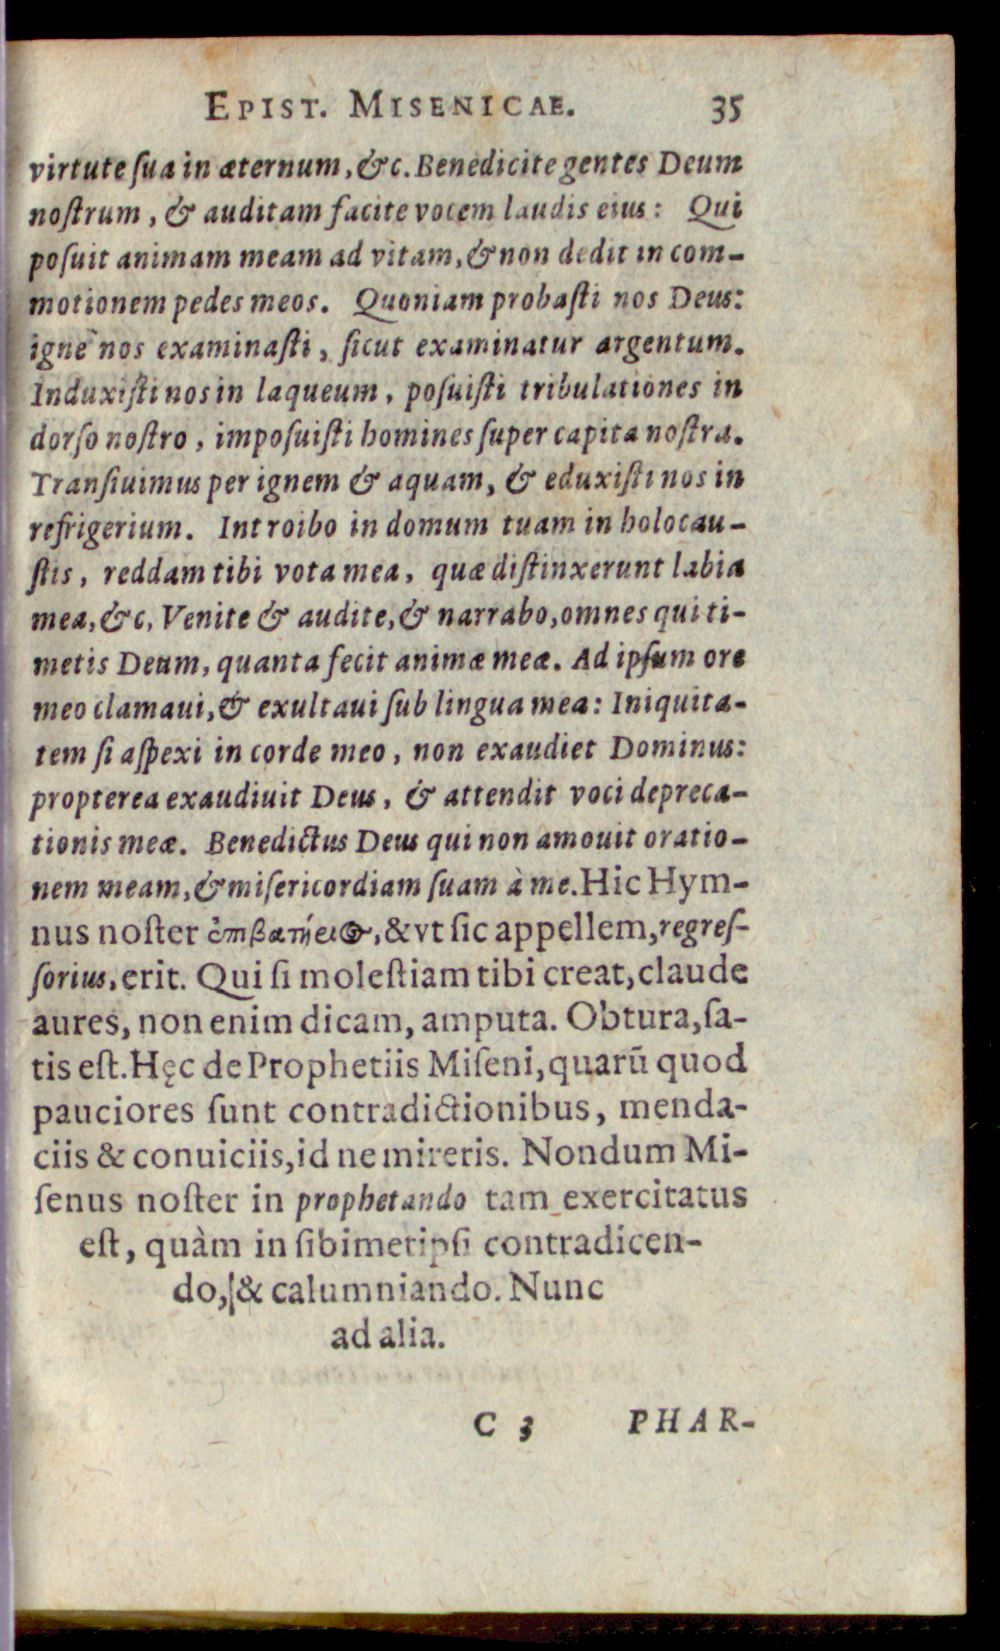 EPIST. MISENICAE. 35
virtute ſua in æternum, &c. Benedicite gentes Deum
noſtrum, & auditam facite vocem laudis eius: Qui
poſuit animam meam ad vitam, & non dedit in com-
motionem pedes meos. Quoniam probaſti nos Deus:
igne nos examinaſti, ſicut examinatur argentum.
Induxiſti nos in laqueum, poſuiſti tribulationes in
dorſo noſtro, impoſuiſti homines ſuper capita noſtra.
Tranſiuimus per ignem & aquam, & eduxiſti nos in
refrigerium. Introibo in domum tuam in holocau-
ſtis, reddam tibi vota mea, quæ diſtinxerunt labia
mea, &c, Venite & audite, & narrabo, omnes qui ti-
metis Deum, quanta fecit animæ meæ. Ad ipſum ore
meo clamaui, & exultaui ſub lingua mea: Iniquita-
tem ſi aſpexi in corde meo, non exaudiet Dominus:
propterea exaudiuit Deus, & attendit voci depreca-
tionis meæ. Benedictus Deus qui non amouit oratio-
nem meam, & miſericordiam ſuam à me. Hic Hym-
nus noſter ἐπιβατήριος, & vt ſic appellem, regreſ-
ſorius, erit. Qui ſi moleſtiam tibi creat, claude
aures, non enim dicam, amputa. Obtura, ſa-
tis eſt. Hęc de Prophetiis Miſeni, quarū quod
pauciores ſunt contradictionibus, menda-
ciis & conuiciis, id ne mireris. Nondum Mi-
ſenus noſter in prophetando tam exercitatus
eſt, quàm in ſibimetipſi contradicen-
do, & calumniando. Nunc
ad alia.
C 3 PHAR-